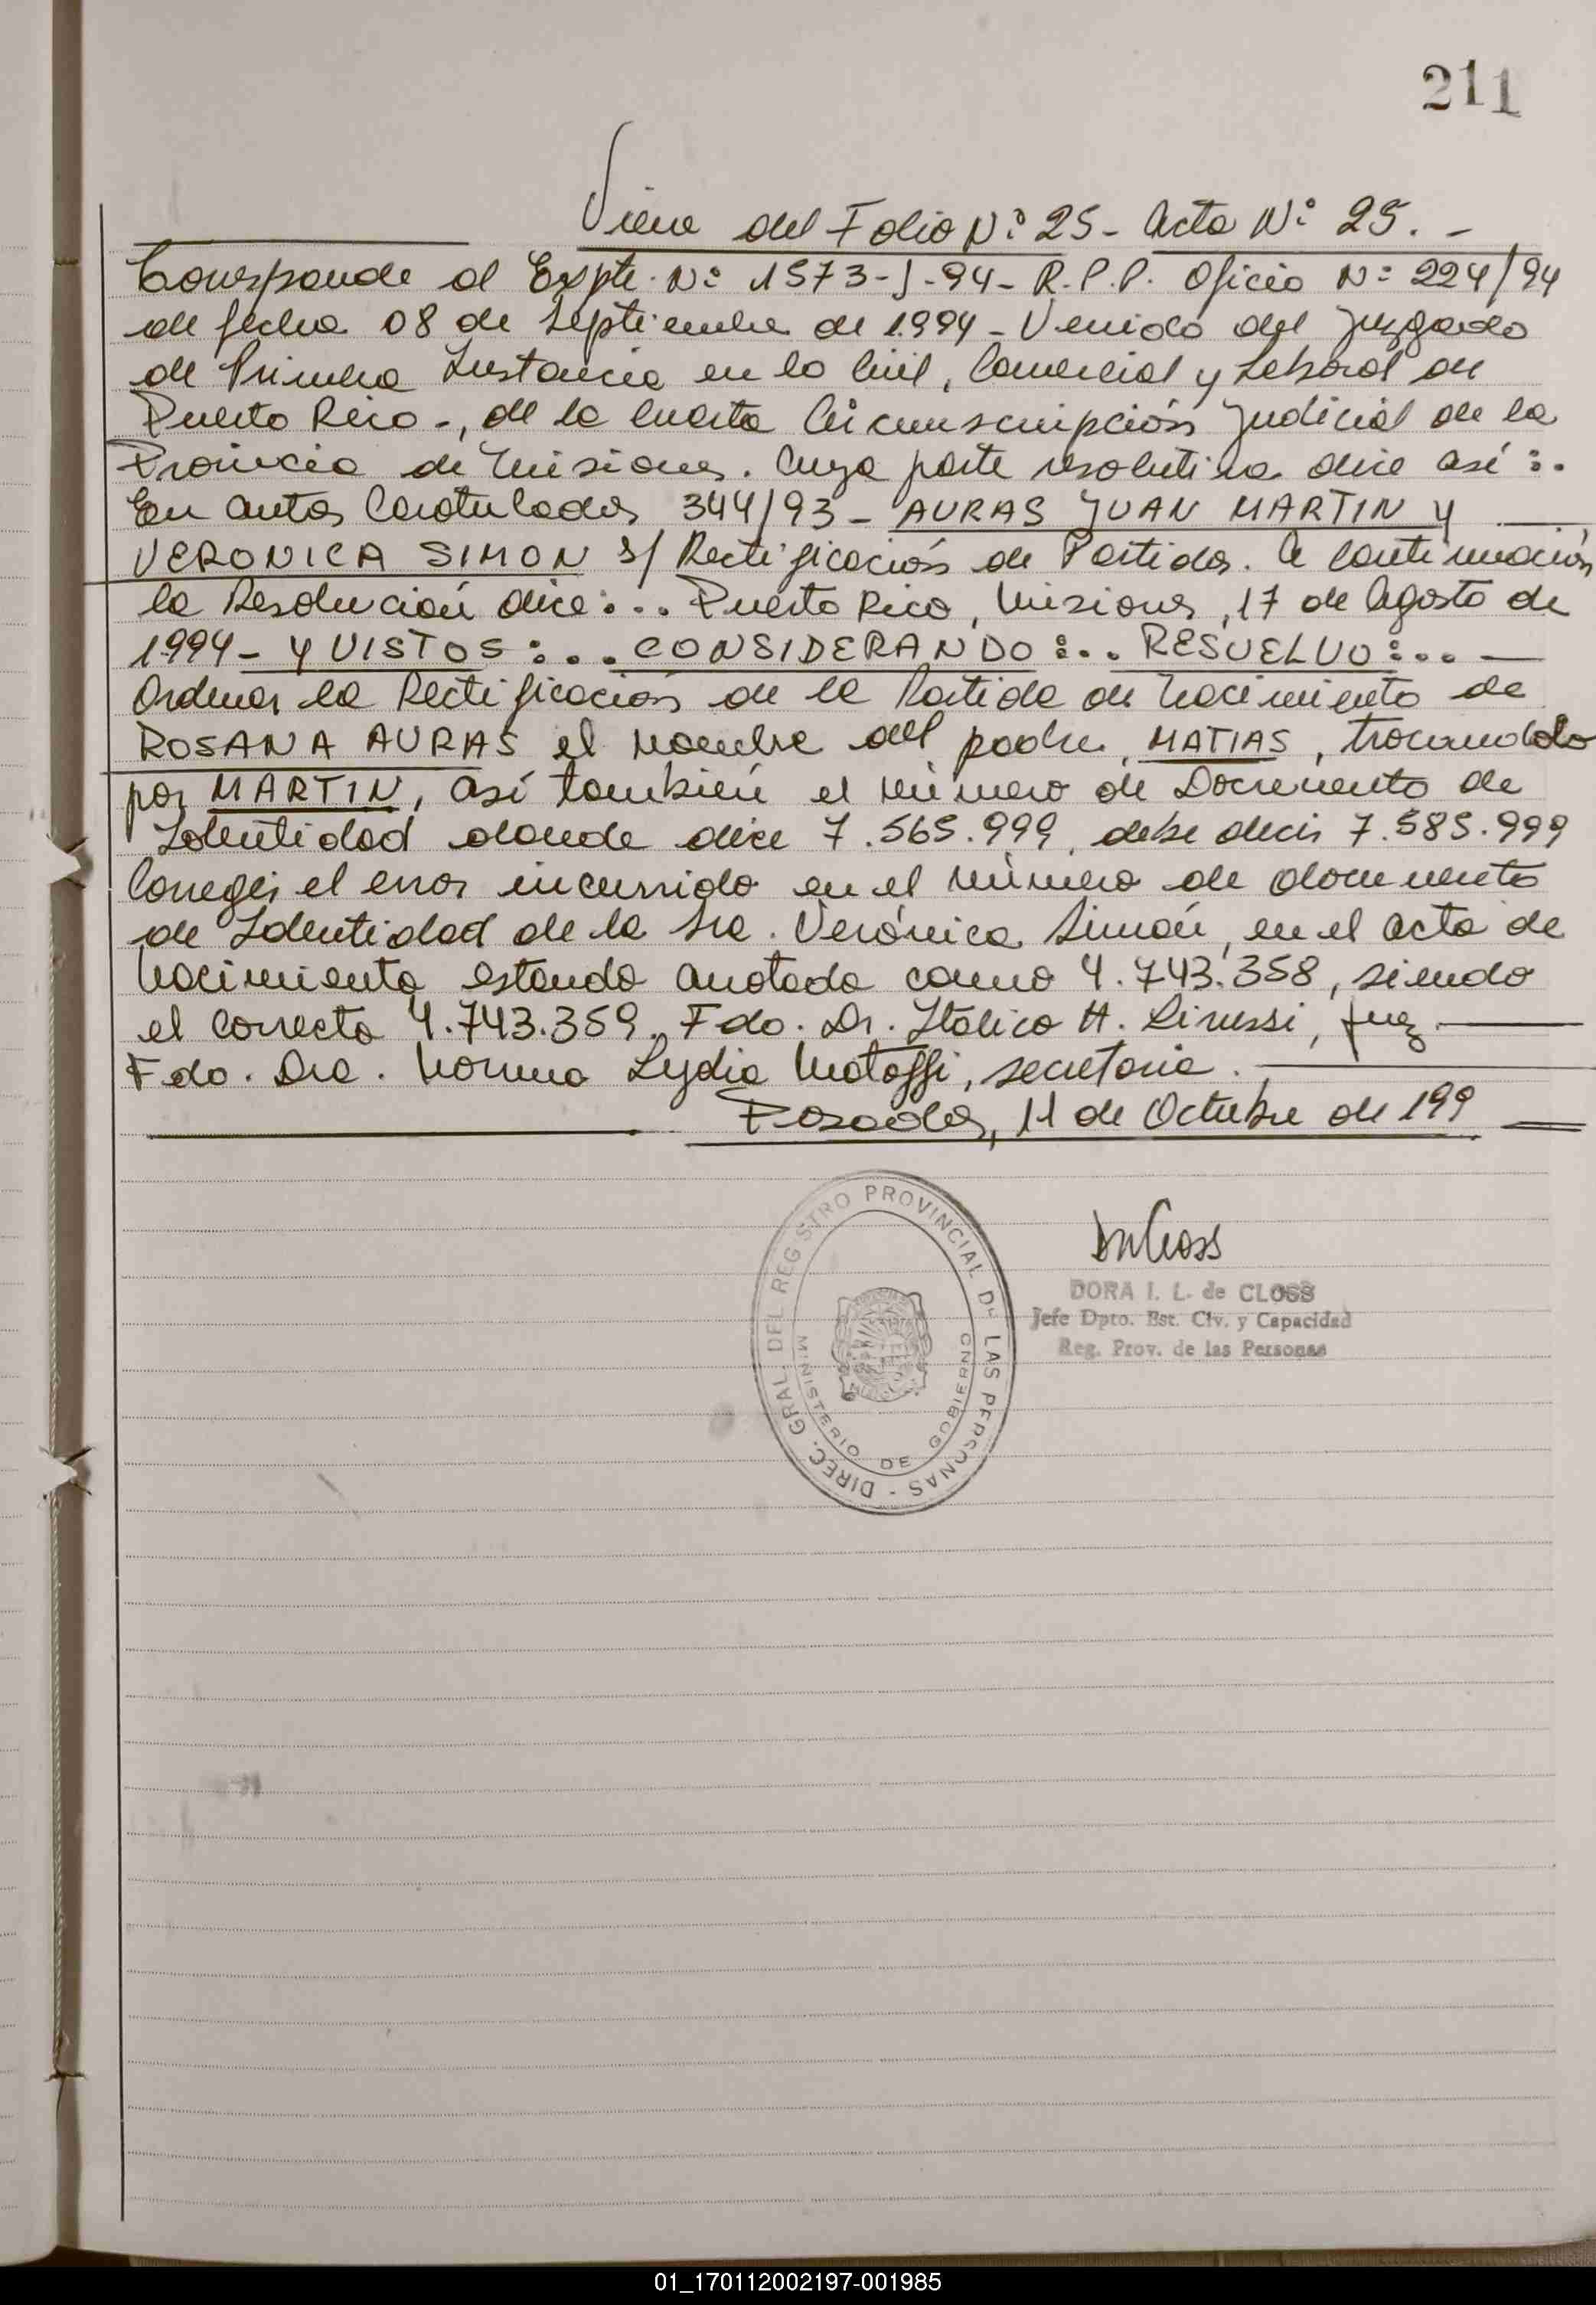 211
Viene del Folio Nº 25 - Acta Nº 25. -
Corresponde al Expte. Nº 1573-J-94- R.P.P. Oficio Nº 224/94
de fecha 08 de Septiembre de 1.994 - Venido del Juzgado
de Primera Instancia en lo Civil, Comercial y Laboral de
Puerto Rico -, de la Cuarta Circunscripción Judicial de la
Provincia de Misiones. Cuya parte resolutiva dice así :.
En autos Caratulados 344/93 - AURAS JUAN MARTIN y
VERONICA SIMON s/ Rectificación de Partida. A continuación
la Resolución dice:... Puerto Rico, Misiones, 17 de Agosto de
1994 - Y VISTOS:... CONSIDERANDO:... RESUELVO:...
Ordenar la Rectificación de la Partida de Nacimiento de
ROSANA AURAS el nombre del padre, MATIAS, trocandolo
por MARTIN, así también el número de Documento de
Identidad donde dice 7.565.999, debe decir 7.585.999
Corregir el error incurrido en el número de documento
de Identidad de la Sra. Verónica Simón, en el acta de
Nacimiento estando anotada como 4.743.358, siendo
el correcto 4.743.359. Fdo. Dr. Itálico H. Juez
Fdo. Dra. Norma Lydia secretaria.
Posadas, 11 de Octubre de 199
DIREC. GRAL. DEL REGISTRO PROVINCIAL DE LAS PERSONAS -
MINISTERIO DE GOBIERNO
DORA I. L. de CLOSS
Jefe Dpto. Est. Civ. y Capacidad
Reg. Prov. de las Personas
01_170112002197-001985